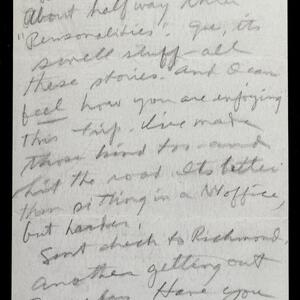 About half way thru
"Personalities". Gee, its
swell stuff - all
these stories. And I can
feel how you are enjoying
this trip. I've made
those kind too - and
hit the road. Its better
than sitting in a NY office,
but harder.
Sent check to Richmond,
another getting out
Have you